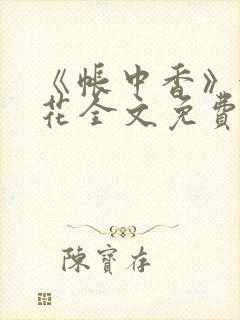 《帳中香》
花全文免費
陳寶存